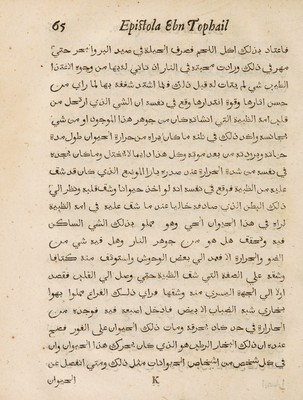 65 Epistola Ebn Tophail
فاعتاد بذلك اكل اللحم فصرف الحيلة في صيد البر والبحر حتى
مهر في ذلك وزادت محبته في النار اذ تاتي له بها من وجوه الاغتذا
الطيب شي لم يتات له قبل ذلك فلما اشتد شغفه بها لما راي من
حسن اثارها وقوة اقتدارها وقع في نفسه ان الشي الذي ارتحل من
قلب امه الظبية التي انشاته كان من جوهر هذا الموجود او من شي
يجانسه واكد ذلك في ظنه ما كان يراه من حرارة الحيوان طول مدة
حياته وبرودته من بعد موته وكل هذا دايما لا يختل وما كان يجده
في نفسه من شدة الحرارة عند صدره بازا الموضع الذي كان قد شق
عليه من الظبية فوقع في نفسه انه لو اخذ حيوانا وشق قلبه ونظر الي
ذلك البطن الذي صادفه خاليا عند ما شق عليه في امه الظبية
لراه في هذا الحيوان الحي وهو مملو بذلك الشي الساكن
فيه وتحقق هل هو من جوهر النار وهل فيه شي من
الضو والحرارة ام لا فعمد الي بعض الوحوش واستوثق منه كتافا
وشقه علي الصفة التي شق بها الظبية حتي وصل الي القلب فقصد
اولا الي الجهة اليسري منه وشقها فراي ذلك الفراغ مملوا بهوا
بخاري يشبه الضباب الابيض فادخل اصبعه فيه فوجده من
الحرارة في حد كاد يحرقه ومات ذلك الحيوان علي الفور فصح
عنده ان ذلك البخار الحار هو الذي كان يحرك هذا الحيوان وان
في كل شخص من اشخاص الحيوانات مثل ذلك ومتي انفصل عن
K الحيوان